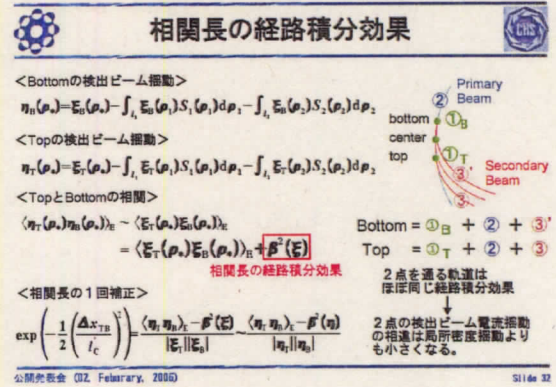 相関長の経路積分効果
CHS
<Bottomの検出ビーム揺動>
η_B(ρ*)=ξ_B(ρ*)-∫_{l₁} ξ_B(ρ₁)S₁(ρ₁)dρ₁-∫_{l₂} ξ_B(ρ₂)S₂(ρ₂)dρ₂
<Topの検出ビーム揺動>
η_T(ρ*)=ξ_T(ρ*)-∫_{l₁} ξ_T(ρ₁)S₁(ρ₁)dρ₁-∫_{l₂} ξ_T(ρ₂)S₂(ρ₂)dρ₂
<TopとBottomの相関>
⟨η_T(ρ*)η_B(ρ*)⟩_E ~ ⟨ξ_T(ρ*)ξ_B(ρ*)⟩_E
= ⟨ξ_T(ρ*)ξ_B(ρ*)⟩_E+β²(ξ)
相関長の経路積分効果
<相関長の1回補正>
exp(-1/2(Δx_TB/l_C)²)=(⟨η_T η_B⟩_E-β²(ξ))/(|ξ_T||ξ_B|)~(⟨η_T η_B⟩_E-β²(η))/(|η_T||η_B|)
Primary
② Beam
bottom ①_B
center
top ①_T
③' Secondary
Beam
③
Bottom = ①_B + ② + ③'
Top = ①_T + ② + ③
2点を通る軌道は
ほぼ同じ経路積分効果
2点の検出ビーム電流揺動
の相違は局所密度揺動より
も小さくなる。
公開発表会 (02, Feburary, 2006)
Slide 32